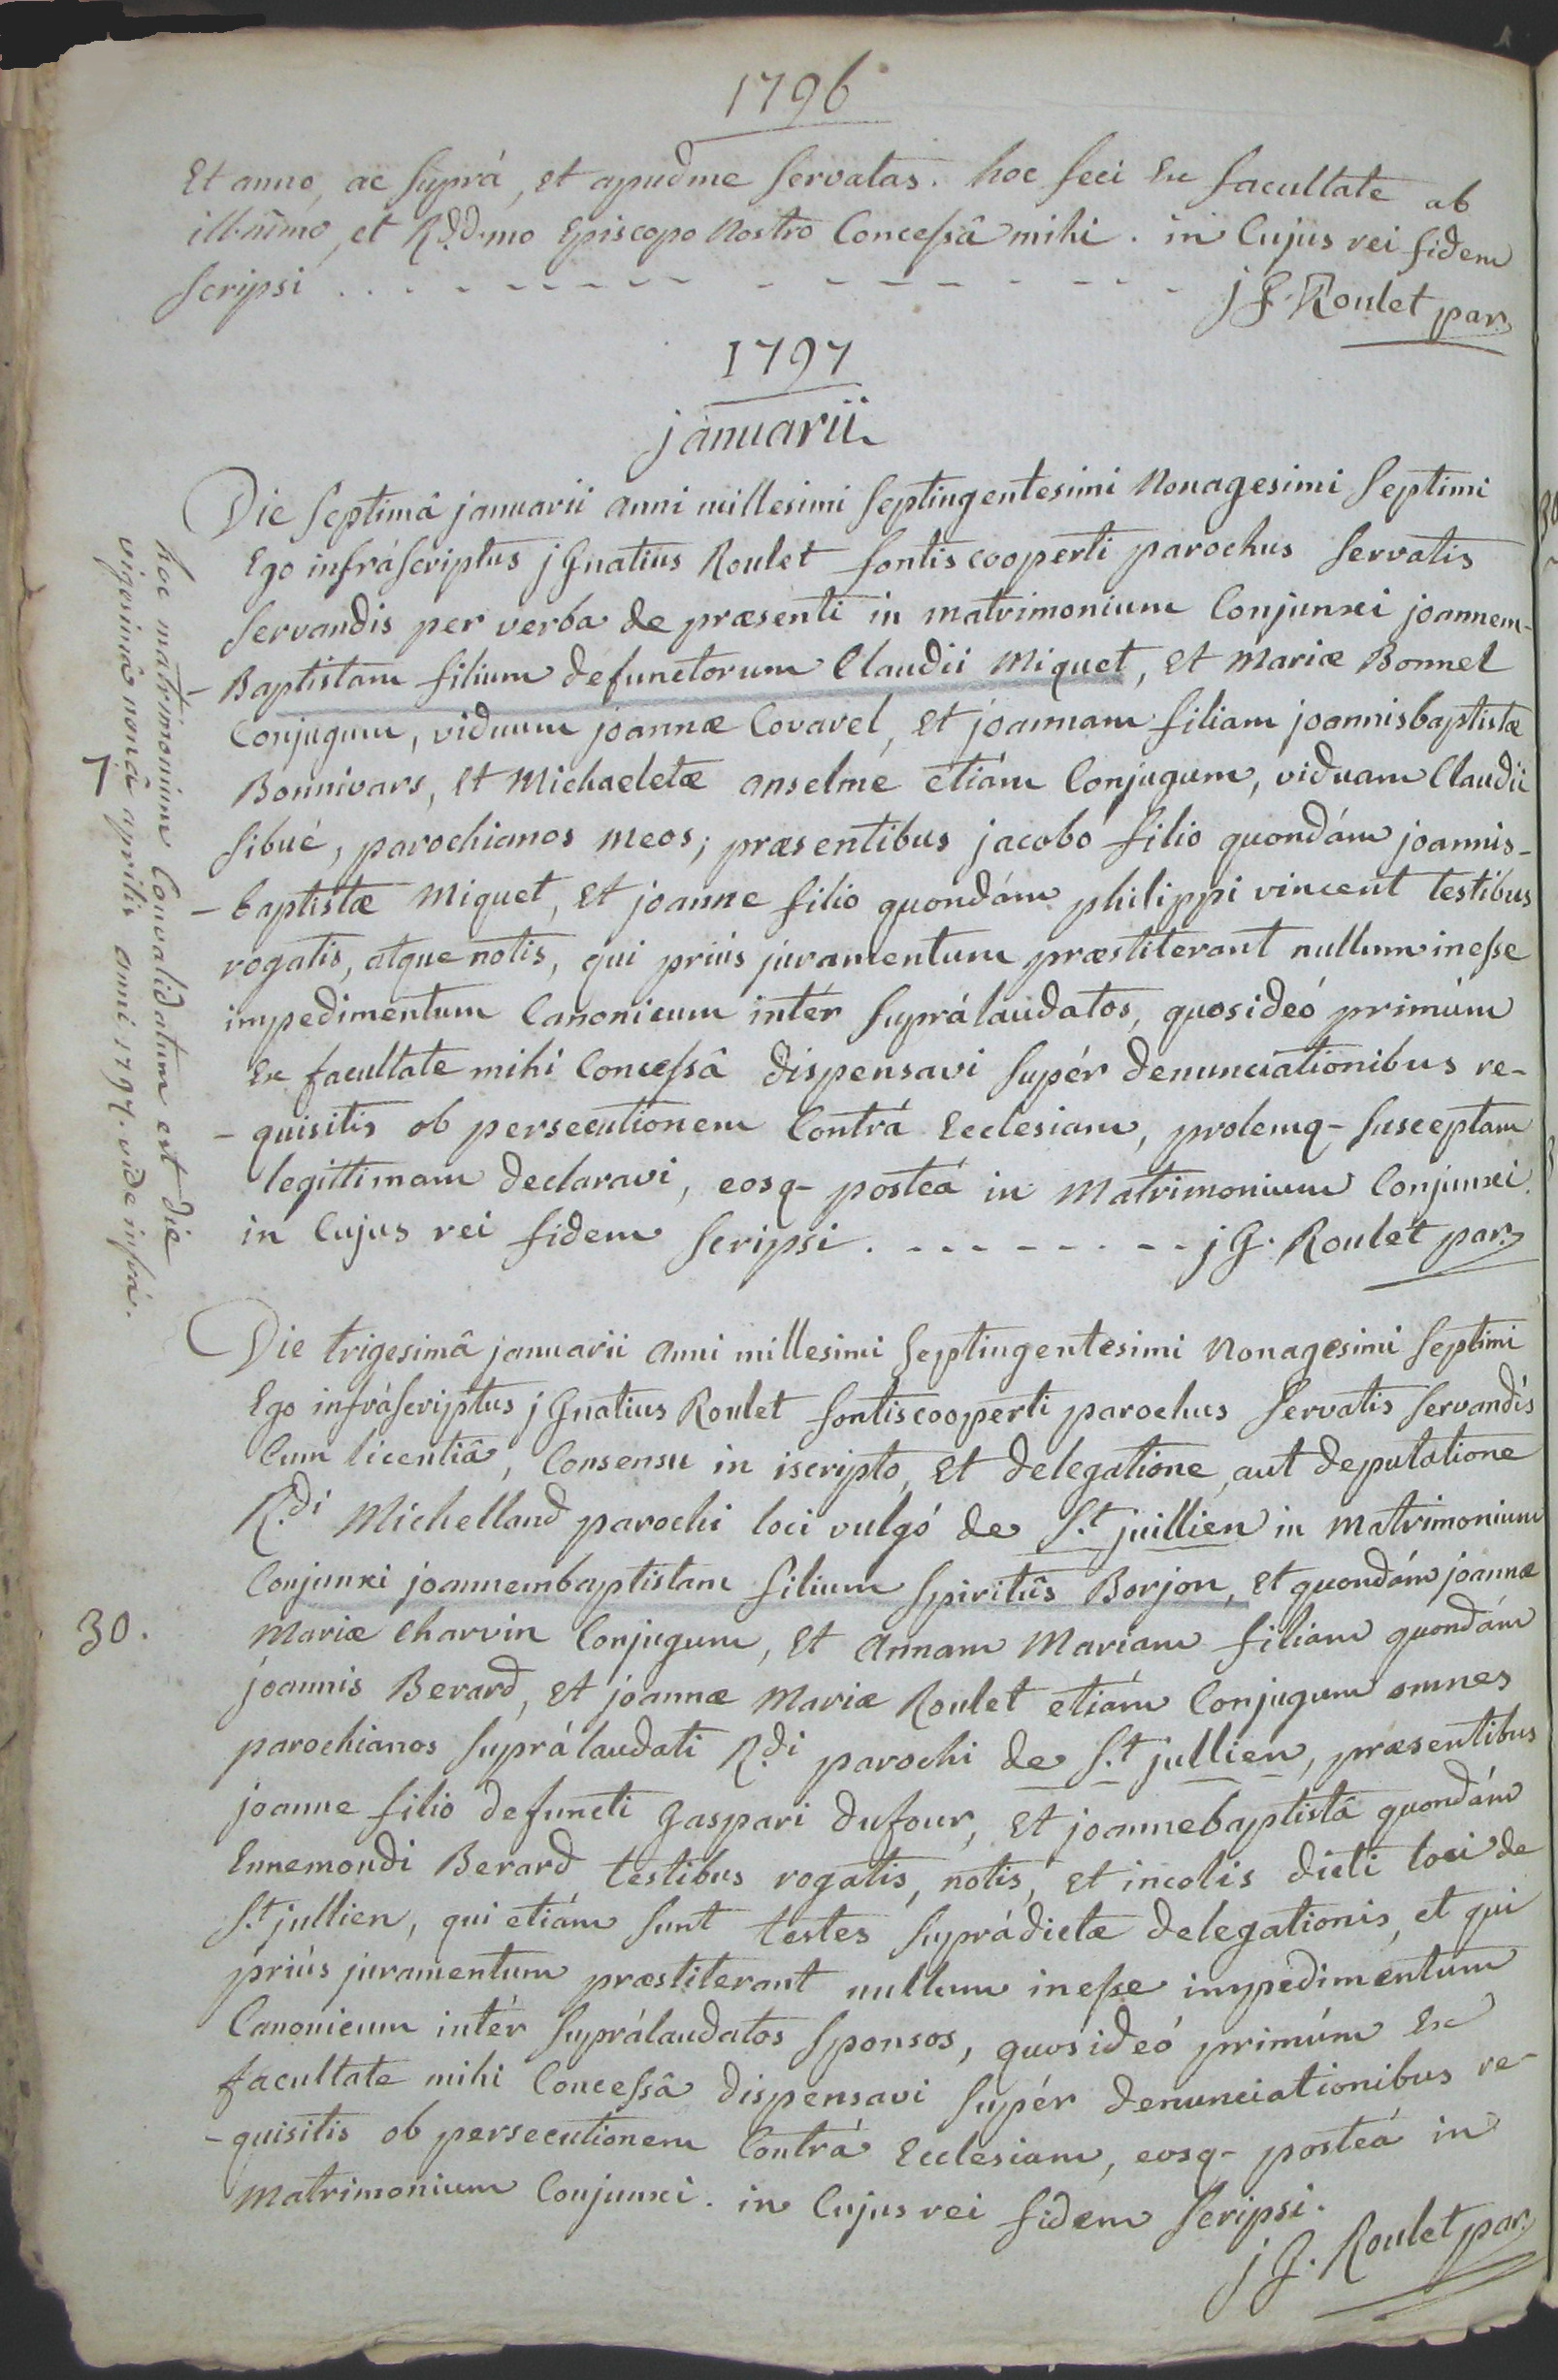 1796
Et anno, ac suprá, et apudme servatas. hoc feci Ex facultate ab
illmo, et R.ddmo Episcopo Nostro Concessâ mihi. in Cujus rei fidem
scripsi . . . - - - - - - - - - - - - - - j G. Roulet par.
1797
januarii
Die septimâ januarii anni millesimi septingentesimi Nonagesimi septimi
Ego infráscriptus jGnatius Roulet fontiscooperti parochus servatis
servandis per verba de præsenti in matrimonium Conjunxi joannem-
-Baptistam filium defunctorum Claudii Miquet, et Mariæ Bonnel
Conjugum, viduum joannæ Covarel, et joannam filiam joannisbaptistæ
Bonnivars, et Michaeletæ anselme etiám Conjugum, viduam Claudii
sibué, parochianos meos; præsentibus jacobo filio quondám joannis-
-baptistæ Miquet, et joanne filio quondám philippi vincent testibus
rogatis, atque notis, qui priús juramentum præstiterant nullum inesse
impedimentum Canonicum intér suprálaudatos, quosideó primúm
Ex facultate mihi Concessâ dispensavi supér denunciationibus re-
-quisitis ob persecutionem Contrá Ecclesiam, prolemq- susceptam
legittimam declaravi, eosq- posteá in Matrimonium Conjunxi.
in Cujus rei fidem scripsi. - - - - - - - - j G. Roulet par.
7
hoc matrimonium Convalidatum est die
vigesimâ nonâ aprilis anni 1797. vide infrá.
Die trigesimâ januarii anni millesimi septingentesimi Nonagesimi septimi
Ego infráscriptus jGnatius Roulet fontiscooperti parochus servatis servandis
Cum licentiâ, Consensu in iscripto, et delegatione, aut deputatione
R.di Michelland parochi loci vulgó de S.t juillien in matrimonium
Conjunxi joannembaptistam filium spiritûs Borjon, et quondám joannæ
Mariæ Charvin Conjugum, et annam Mariam filiam quondám
joannis Berard, et joannæ Mariæ Roulet etiám Conjugum omnes
parochianos suprálaudati R.di parochi de S.t jullien, præsentibus
joanne filio defuncti gaspari dufour, et joannebaptistâ quondám
Ennemondi Berard testibus rogatis, notis, et incolis dicti loci de
S.t jullien, qui etiám sunt testes suprádictæ delegationis, et qui
priús juramentum præstiterant nullum inesse impedimentum
Canonicum intér suprálaudatos sponsos, quosideó primúm Ex
facultate mihi Concessâ dispensavi supér denunciationibus re-
-quisitis ob persecutionem Contrá Ecclesiam, eosq- posteá in
Matrimonium Conjunxi. in Cujus rei fidem scripsi.
j G. Roulet par.
30.